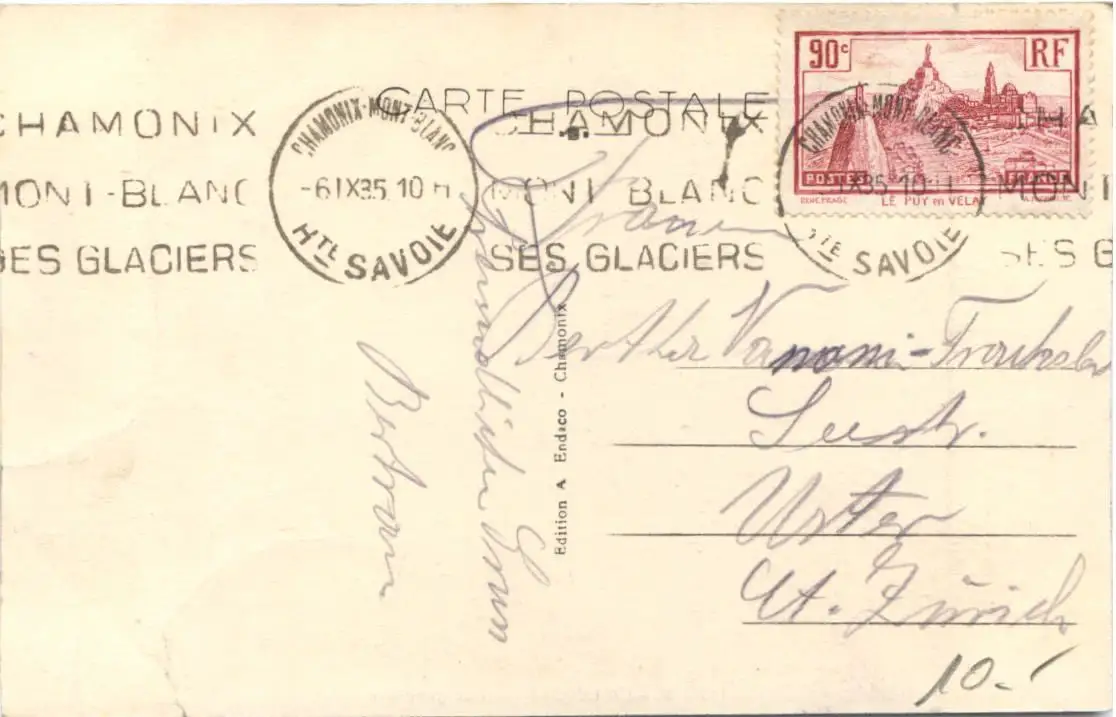 CARTE POSTALE
90c RF
POSTES
LE PUY en VELAY
CHAMONIX-MONT-BLANC
-6 IX35 10 H
HTE SAVOIE
CHAMONIX-MONT-BLANC
IX35 10 H
HTE SAVOIE
CHAMONIX
MONT-BLANC
SES GLACIERS
CHAMONIX
MONT BLANC
SES GLACIERS
MONT
SES G
Edition A Endico - Chamonix
Freundlichen Gruss
Bertram
Frau
Bertha Vanoni-
Seestr.
Uster
Kt. Zürich
10.-